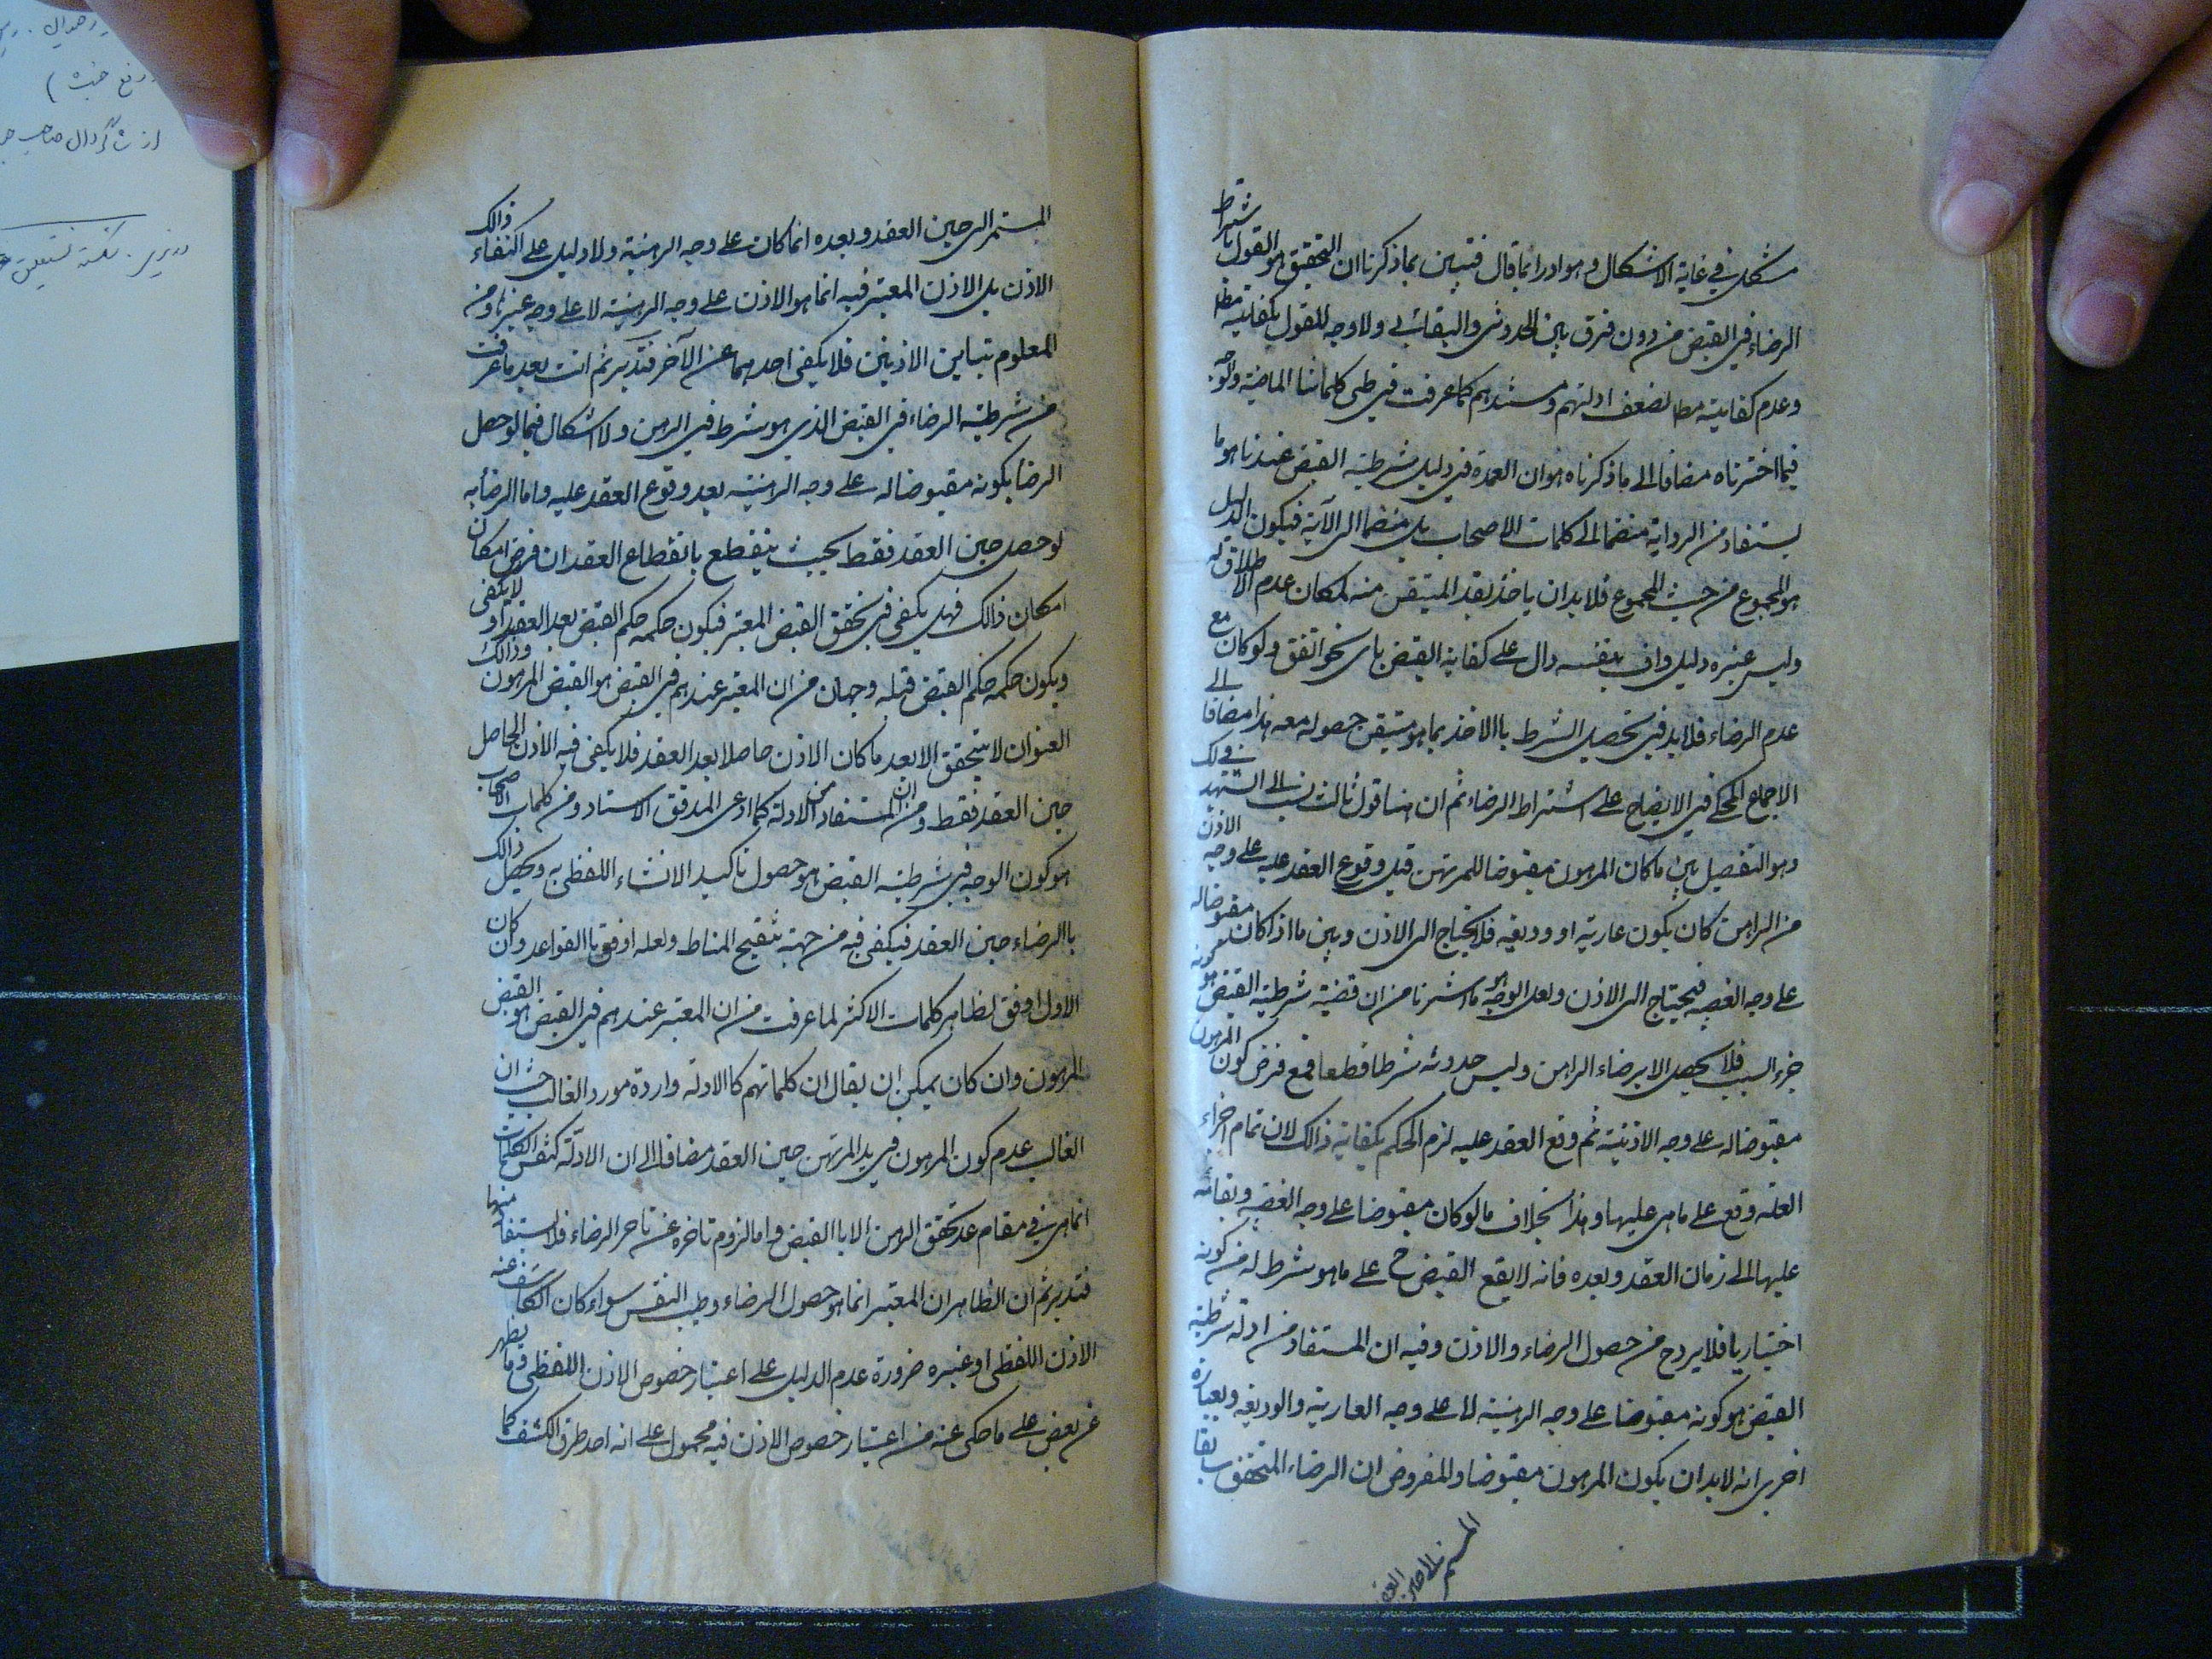 مشكل في غاية الاشكال وهو ادرا بما قال فتبين بما ذكرنا ان التحقيق هو القول باشتراط
الرضاء في القبض من دون فرق بين الحدوثى والبقائى ولا وجه للقول بكفايته مطا
وعدم كفايته مطا لضعف ادلتهم ومستندهم كما عرفت في طى كلماتنا الماضية والوجه
فيما اخترناه مضافا الى ما ذكرناه هو ان العمدة في دليل شرطية القبض عندنا هو ما
يستفاد من الرواية منضما الى كلمات الاصحاب بل منضما الى الآية فيكون الدليل
هو المجموع من حيث المجموع فلا بد ان ياخذ بقدر المتيقن منه لمكان عدم الاطلاق له
وليس غيره دليل واف بنفسه دال على كفاية القبض باى نحو اتفق ولو كان مع
عدم الرضاء فلا بد في تحصيل الشرط باالاخذ بما هو متيقن حصوله معه هذا مضافا الى
الاجماع المحكى في الايضاح على اشتراط الرضاء ثم ان هنا قول ثالث نسب الى الشهيد في لك
وهو التفصيل بين ما كان المرهون مقبوضا للمرتهن قبل وقوع العقد عليه على وجه الاذن
من الراهن كان يكون عارية او وديعة فلا يحتاج الى الاذن وبين ما اذا كان مقبوضا له
على وجه الغصب فيحتاج الى الاذن ولعل الوجه هو ما اشرنا من ان قضية شرطية القبض هو كونه
جزء السبب فلا يحصل الا برضاء الراهن وليس حدوثه شرطا قطعا فمع فرض كون المرهون
مقبوضا له على وجه الاذنية ثم وقع العقد عليه لزم الحكم بكفاية ذالك لان تمام اجزاء
العلة وقع على ما هى عليها وهذا بخلاف ما لو كان مقبوضا على وجه الغصب وبقائه
عليها الى زمان العقد وبعده فانه لا يقع القبض ح على ما هو شرط له من كونه
اختياريا فلا بد ح من حصول الرضاء والاذن وفيه ان المستفاد من ادلة شرطية
القبض هو كونه مقبوضا على وجه الرهنية لا على وجه العارية والوديعة وبعبارة
اخرى انه لا بد ان يكون المرهون مقبوضا والمفروض ان الرضاء المتحقق سابقا
المستمر الى حين العقد وبعده انما كان على وجه الرهنية ولا دليل على اكتفاء ذالك
الاذن بل الاذن المعتبر فيه انما هو الاذن على وجه الرهنية لا على وجه غيرها ومن
المعلوم تباين الاذنين فلا يكفى احدهما عن الآخر فتدبر ثم انت بعد ما عرفت
من شرطية الرضاء في القبض الذي هو شرط في الرهن ولا اشكال فيما لو حصل
الرضا بكونه مقبوضا له على وجه الرهنية بعد وقوع العقد عليه واما الرضا به
لو حصل حين العقد فقط بحيث ينقطع بانقطاع العقد ان فرض امكان
امكان ذالك فهل يكفى في تحقق القبض المعتبر فيكون حكمه حكم القبض بعد العقد او لا يكفى
ويكون حكمه حكم القبض قبله وجهان من ان المعتبر عندهم في القبض هو القبض المرهون وذالك
العنوان لا يتحقق الا بعد ما كان الاذن حاصلا بعد العقد فلا يكفى فيه الاذن الحاصل
حين العقد فقط ومن ان المستفاد من الادلة كما ادعى المدقق الاستاد ومن كلمات الاصحاب
هو كون الوجه في شرطية القبض هو حصول تاكيد الانشاء اللفظى به ويحصل ذالك
باالرضاء حين العقد فيكفى فيه من جهة تنقيح المناط ولعله اوفق باالقواعد وان كان
الاول اوفق لظاهر كلمات الاكثر لما عرفت من ان المعتبر عندهم في القبض هو القبض
المرهون وان كان يمكن ان يقال ان كلماتهم كاالادلة واردة مورد الغالب حيث ان
الغالب عدم كون المرهون في يد المرتهن حين العقد مضافا الى ان الادلّة كنفس الكلمات
انما هى في مقام عدم تحقق الرهن الا باالقبض واما لزوم تاخره عن تاخر الرضاء فلا يستفاد منها
فتدبر ثم ان الظاهر ان المعتبر انما هو حصول الرضاء وطيب النفس سواء كان الكاشف عنه
الاذن اللفظى او غيره ضرورة عدم الدليل على اعتبار خصوص الاذن اللفظى وما يظهر
من بعض على ما حكى عنه من اعتبار خصوص الاذن فيه محمول على انه احد طرق الكشف كما